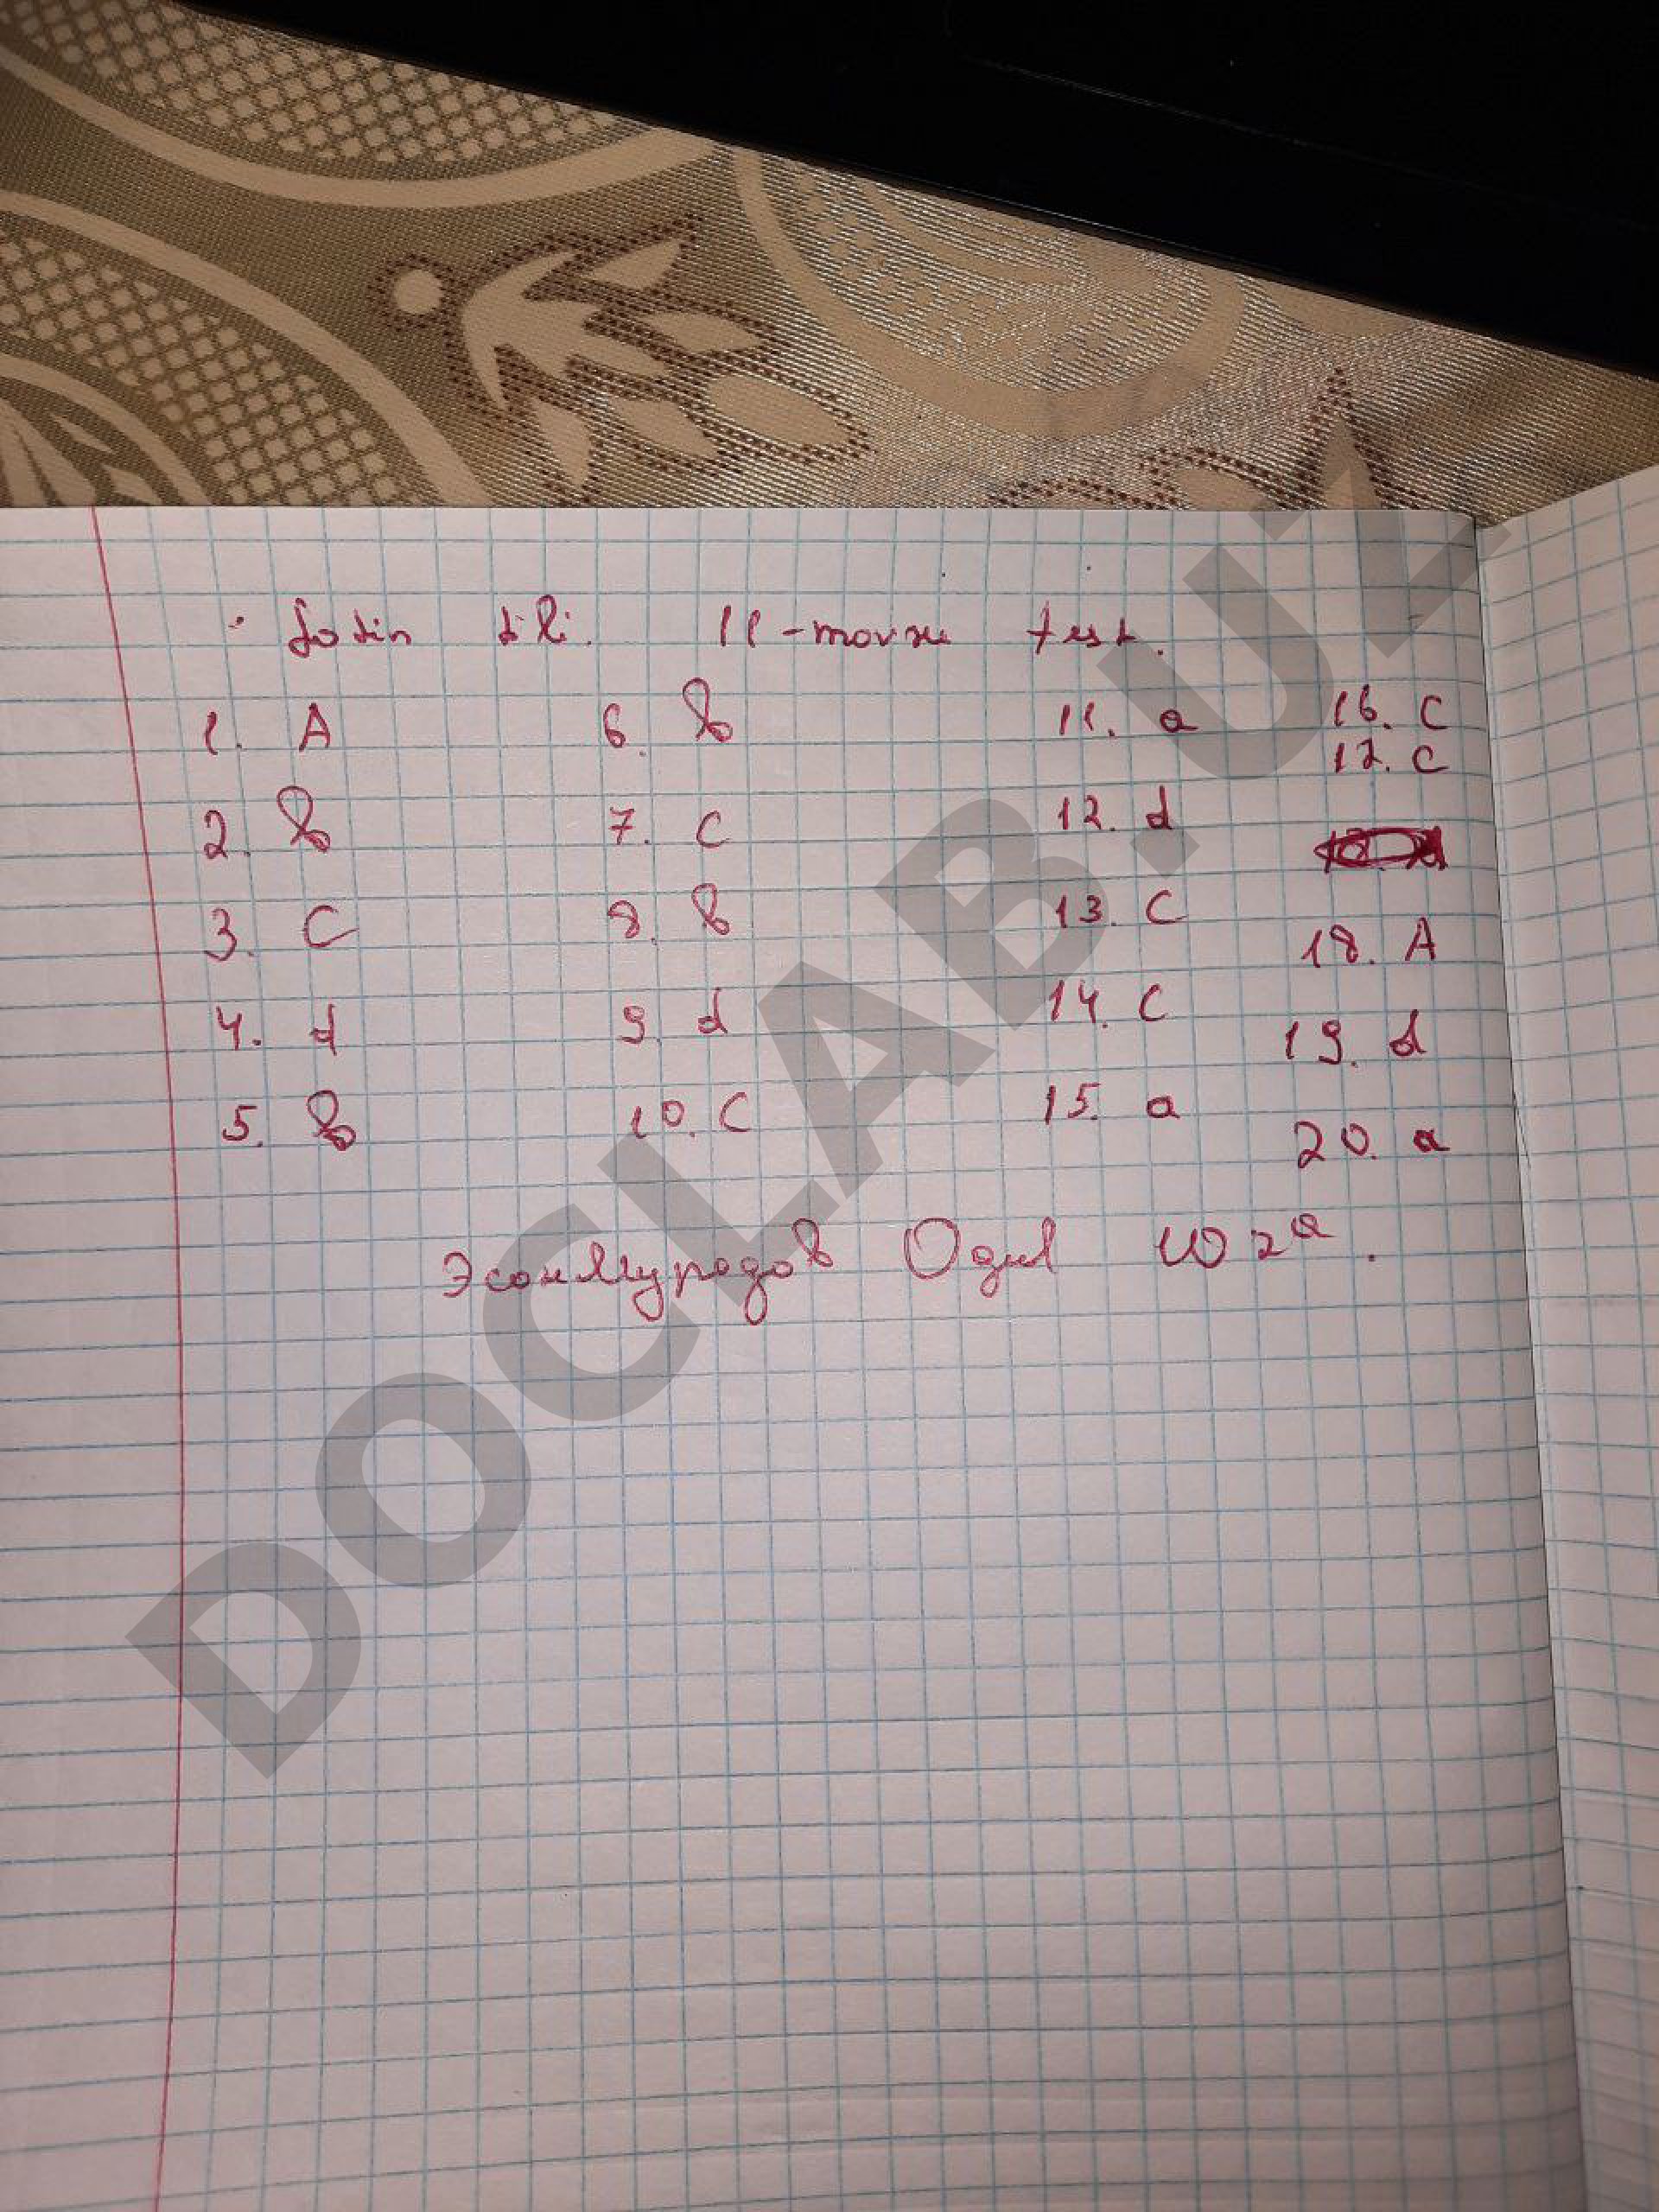 Lotin tili. 11-mavzu test.
1. A 6. b 11. a 16. c
17. c
2. b 7. c 12. d
3. C 8. b 13. c
18. A
4. d 9. d 14. c
19. d
5. b 10. C 15. a
20. a
Эсонмуродов Одил 102a.
DOCLAB.UZ